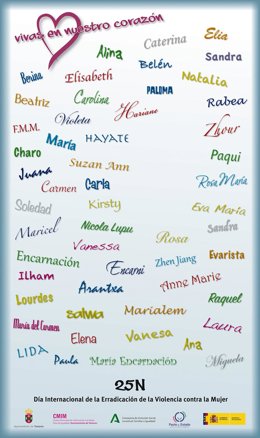 vivas en nuestro corazón
Elia
Caterina
Alina
Sandra
Belén
Benina
Elisabeth
Natalia
PALIMA
Beatriz
Carolina
Rabea
Hariane
Violeta
F.M.M.
Zhour
María
HAYATE
Charo
Paqui
Suzan Ann
Juana
Rosa María
Carmen
Carla
Soledad
Kirsty
Eva María
Maricel
Nicola Lupu
Sandra
Rosa
Vanessa
Encarnación
Evarista
Encarni
Zhen Jiang
Ilham
Anne Marie
Arantxa
Lourdes
Raquel
Salwa
Marialem
María del Carmen
Laura
Elena
Vanesa
LIDA
Ana
Paula
María Encarnación
Miguela
25N
Día Internacional de la Erradicación de la Violencia contra la Mujer
CMIM